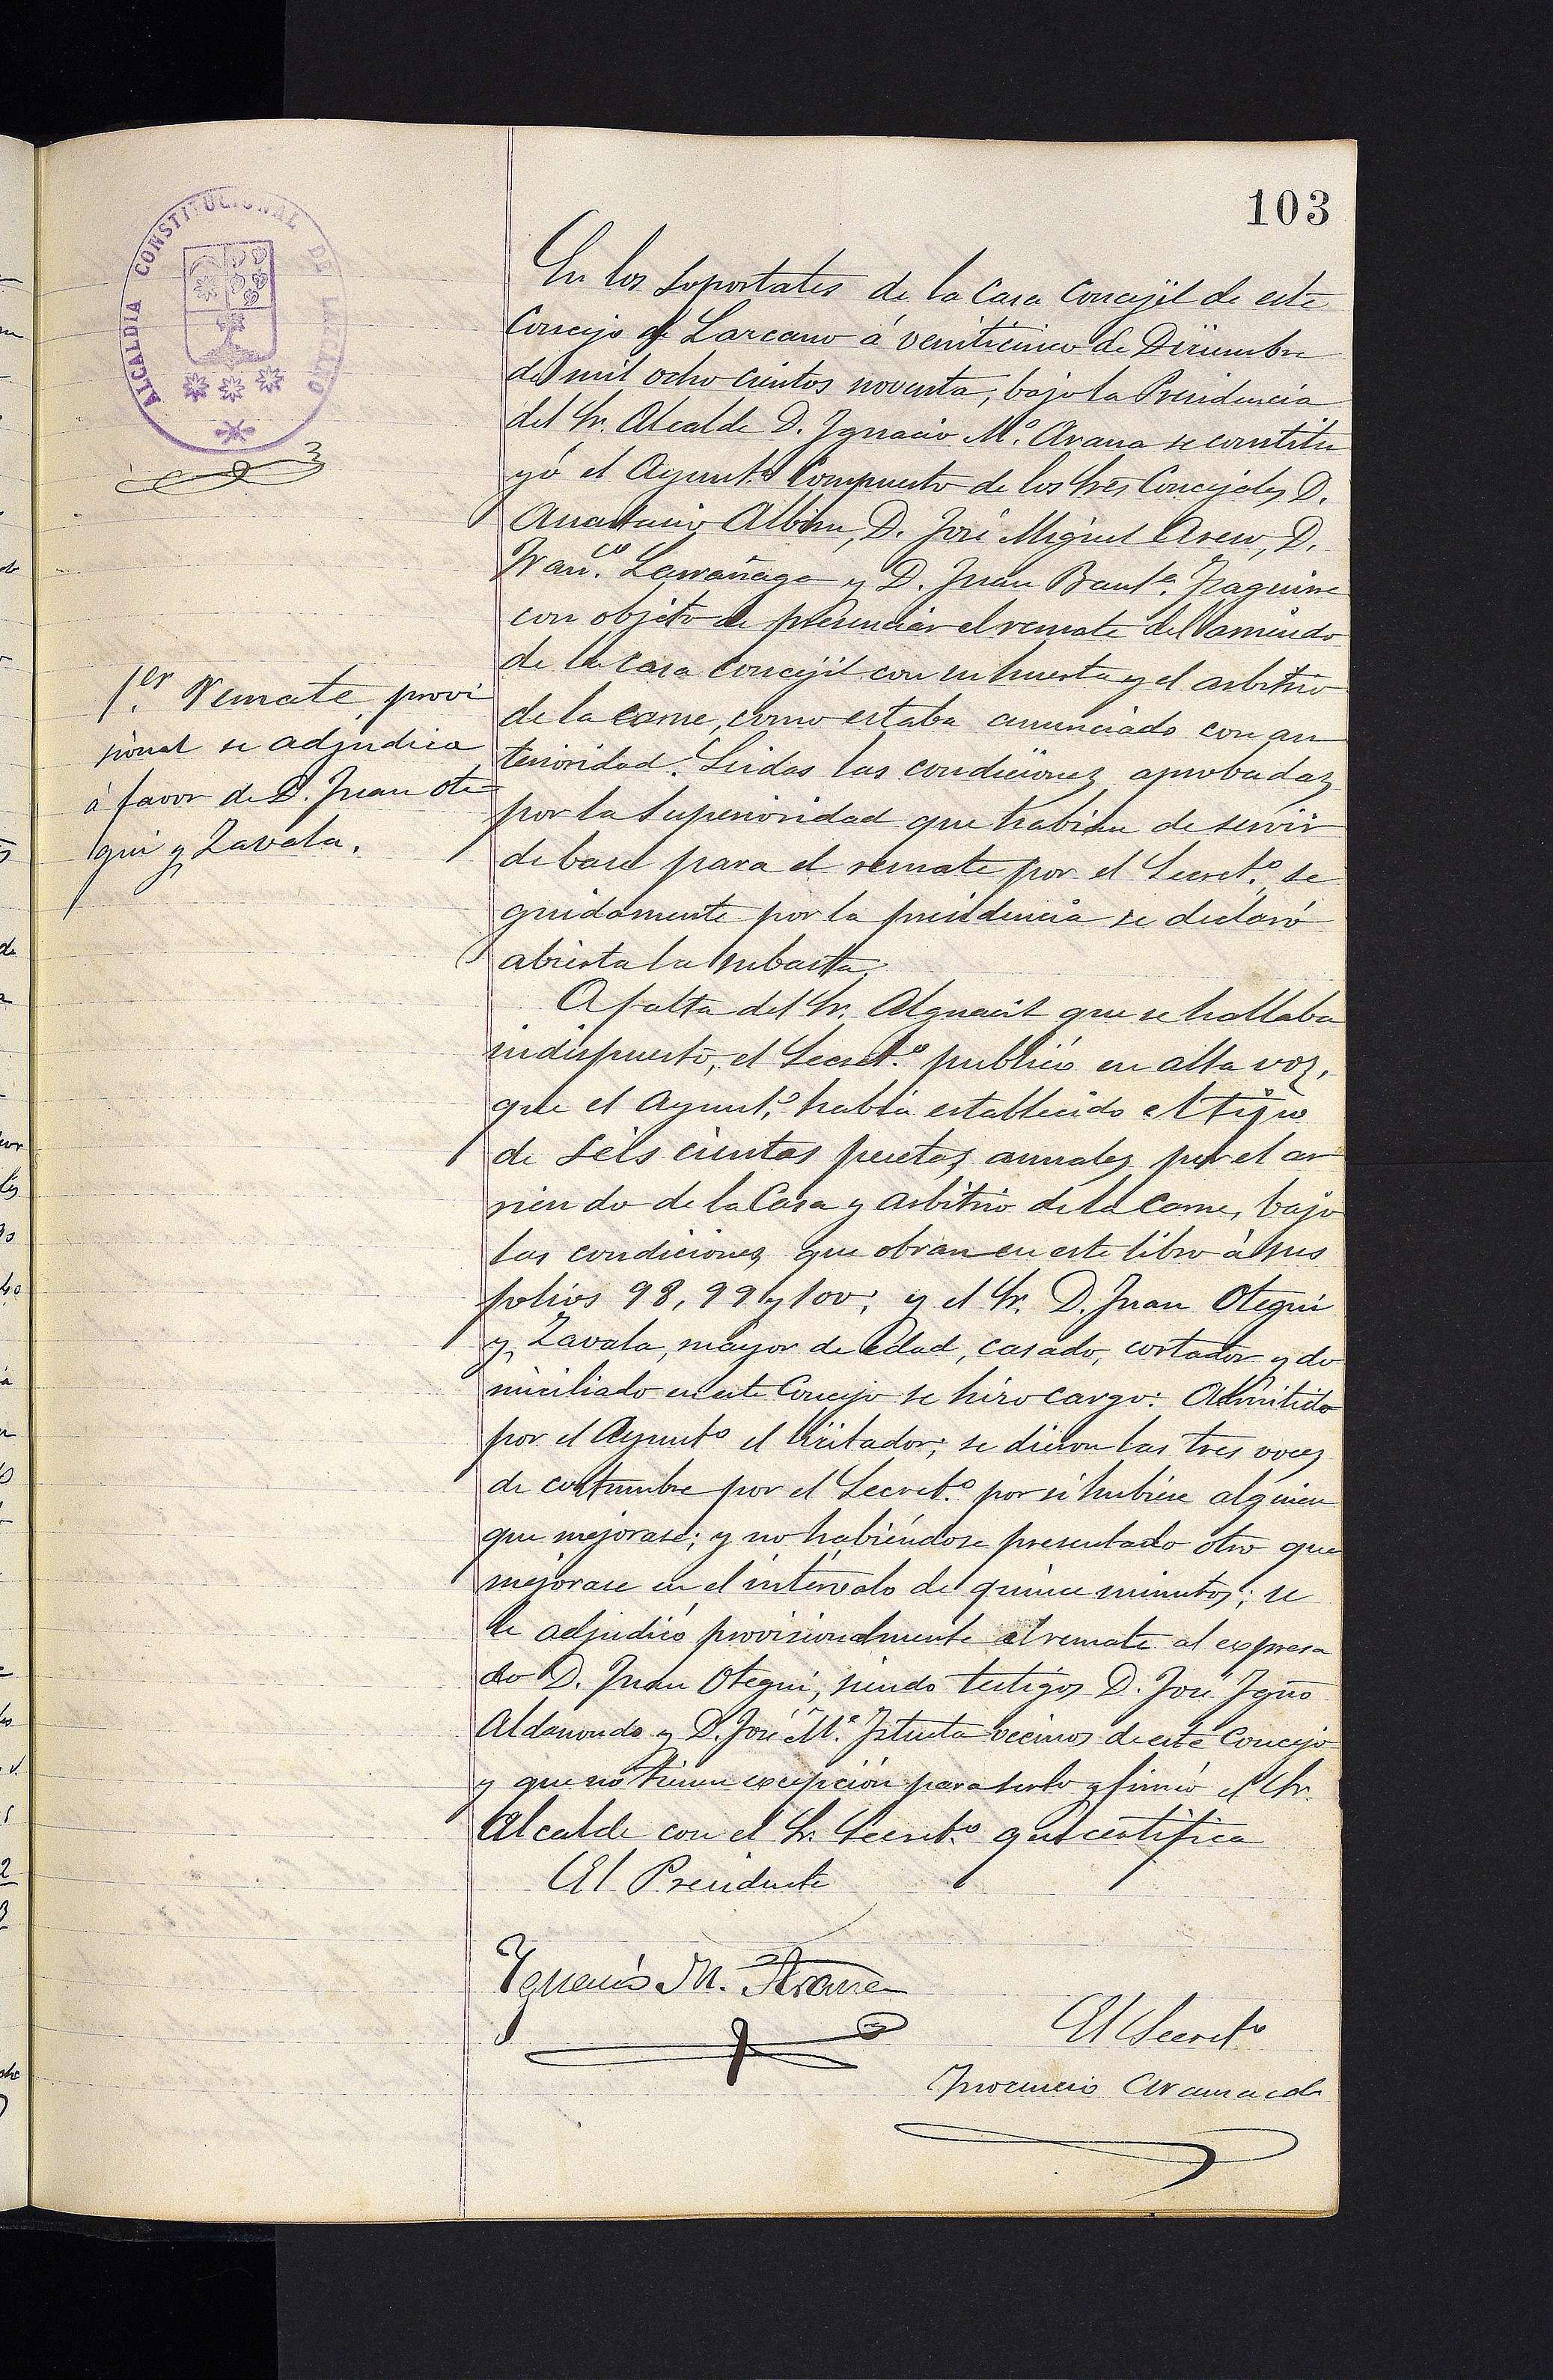 103
ALCALDIA CONSTITUCIONAL DE LAZCANO
En los soportales de la Casa Concejil de este
Concejo de Lazcano á veinticinco de Diciembre
de mil ocho cientos noventa, bajo la Presidencia
del Sr. Alcalde D. Ignacio Mª. Arana se constitu
yó el Ayuntº. Compuesto de los Sres Concejales D.
Anastasio Albisu, D. José Miguel Aseso, D.
Franco. Larrañaga y D. Juan Bauta. Izaguirre
con objeto de presenciar el remate del arriendo
de la casa concejil con su huerta y el arbitrio
de la carne, como estaba anunciado con an
terioridad. Leidas las condiciones aprobadas
por la Superioridad que habian de servir
de base para el remate por el Secretº. se
guidamente por la presidencia se declaró
abierta la subasta.
1er. Remate provi
sional se adjudica
á favor de D. Juan Ote=
gui y Zavala.
A falta del Sr. Alguacil que se hallaba
indispuesto, el Secretº. publicó en alta voz,
que el Ayuntº. habia establecido el tipo
de seis cientas pesetas anuales por el ar
riendo de la Casa y arbitrio de la Carne, bajo
las condiciones que obran en este libro á sus
folios 98, 99 y 100; y el Sr. D. Juan Otegui
y Zavala, mayor de edad, casado, cortador y do
miciliado en este Concejo se hizo cargo: Admitido
por el Ayuntº el licitador; se dieron las tres voces
de costumbre por el Secretº. por si hubiese alguien
que mejorase; y no habiéndose presentado otro que
mejorase en el intérvalo de quince minutos; se
le adjudicó provisionalmente el remate al expresa
do D. Juan Otegui, siendo testigos D. José Igno
Aldanondo y D. José Mª. Iztueta vecinos de este Concejo
y que no tienen excepción para serlo y firmó el Sr.
Alcalde con el Sr. Secretº. que certifica
El Presidente
Ignacio M. Arana
El Secretº
Inocencio